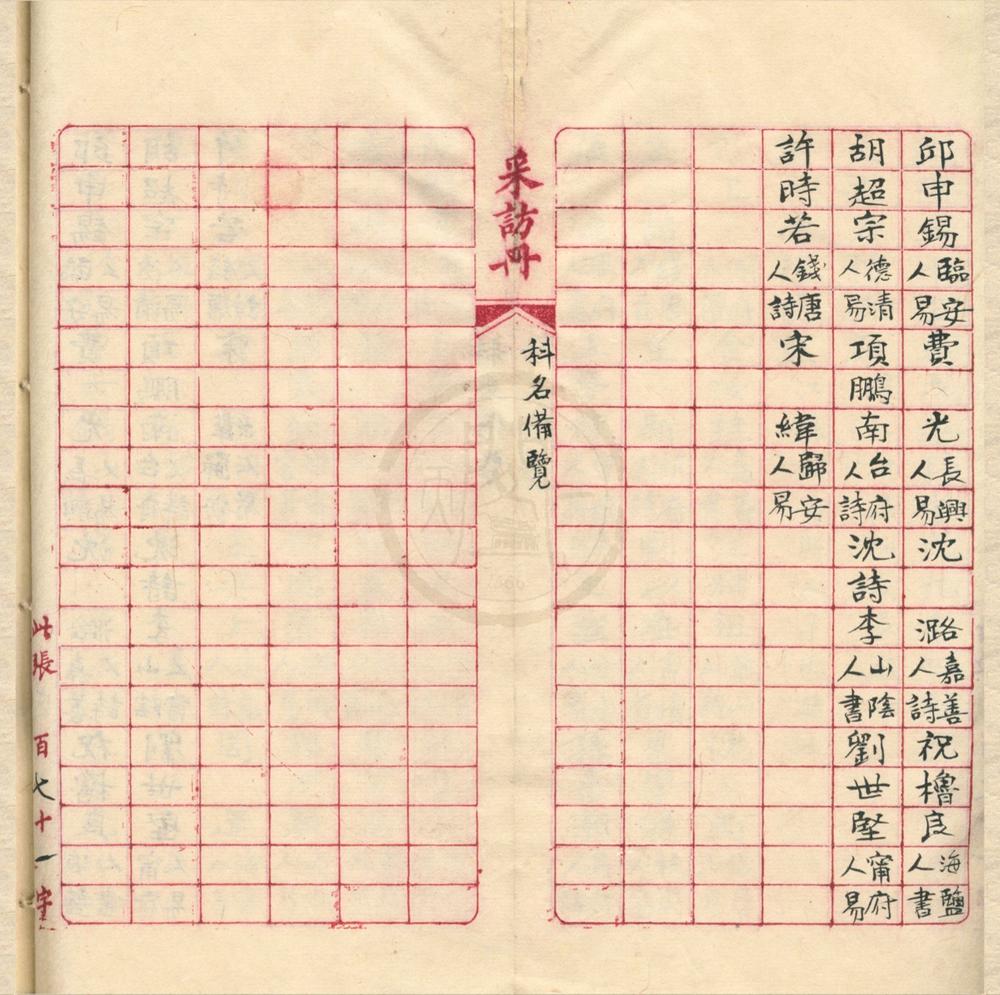 邱申錫臨安人易費光長興人易沈潞嘉善人詩祝櫓良海鹽人書
胡超宗德清人易項鵬南台府人詩沈詩李山陰人書劉世堅甯府人易
許時若錢唐人詩宋緯歸安人易
采訪冊
科名備覽
此張 百七十一字